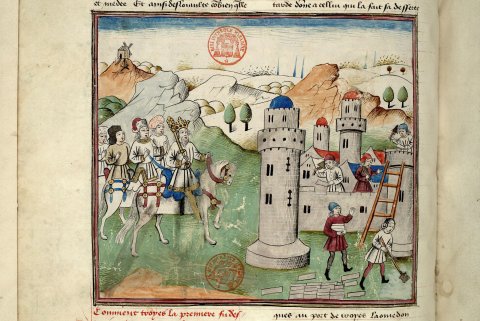 et medee Et ainsi desloyaulte cobien qlle
tarde done a cellui qui la fait sa desserte
Comment troyes la premiere fu des
ques au port de troyes laomedon